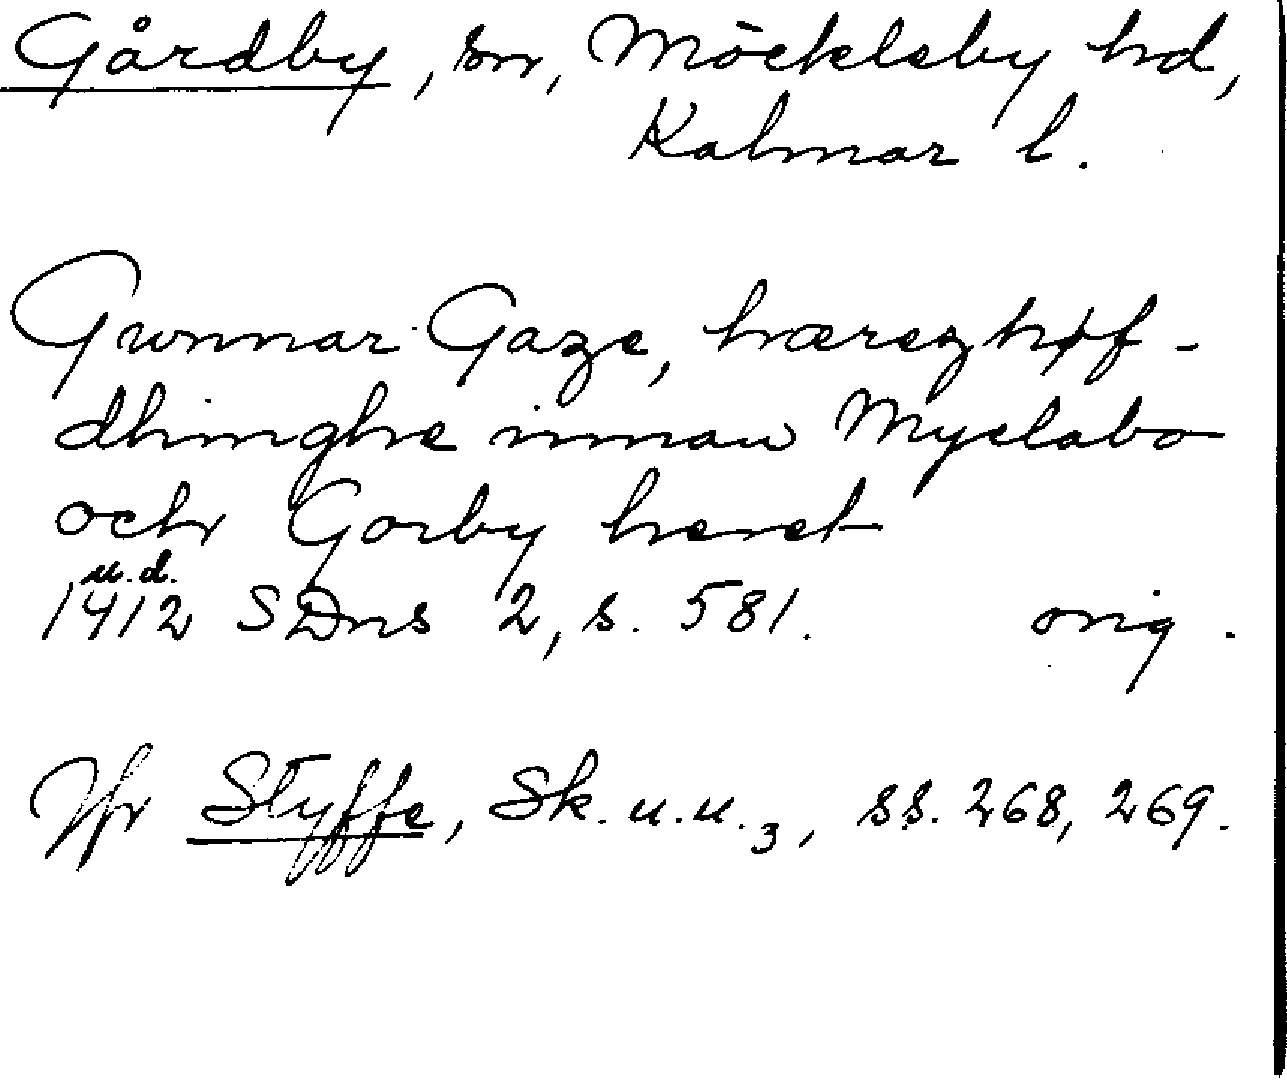 Gårdby, sn, Möckleby hd,
Kalmar l.
Gunnar Gaze, hæredzhøf-
dhinghe innan Myclabo
och Gorby heret
u.d.
1412 SDns 2, s. 581. orig.
Jfr Styffe, Sk.u.u.3, ss. 268, 269.